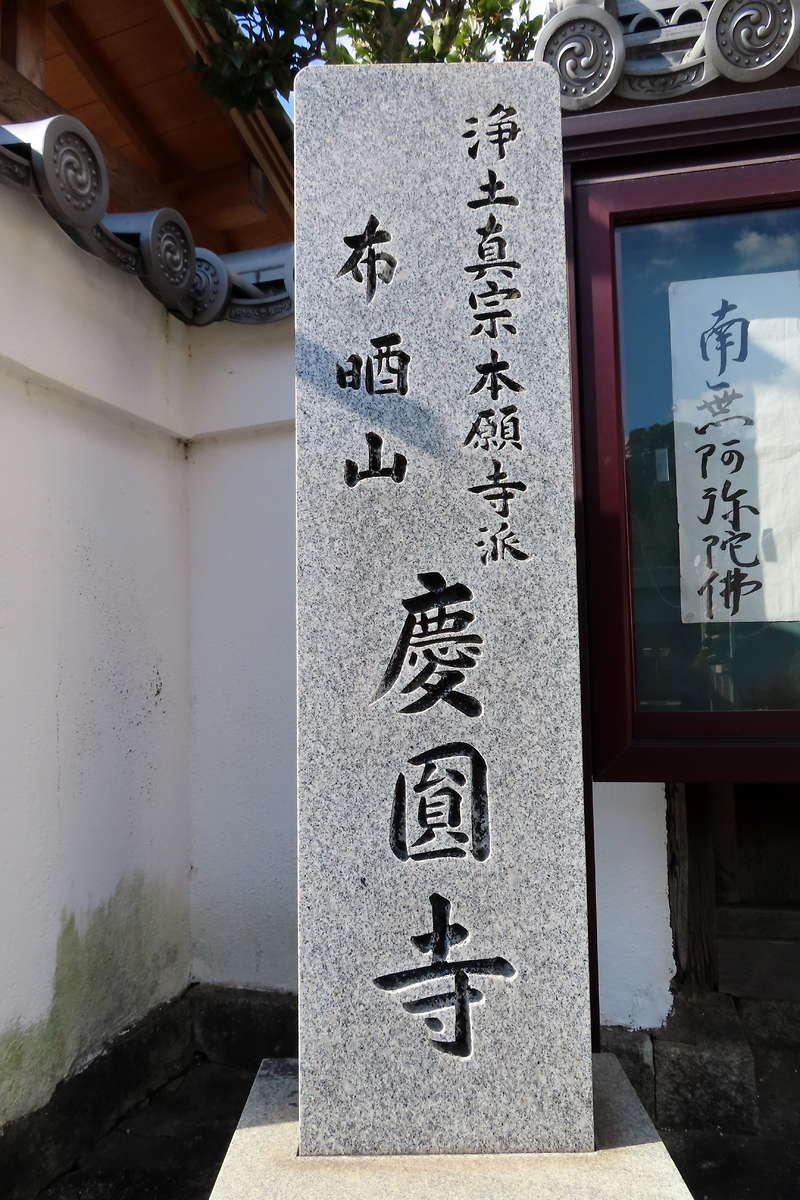 浄土真宗本願寺派
布晒山
慶圓寺
南無阿弥陀佛